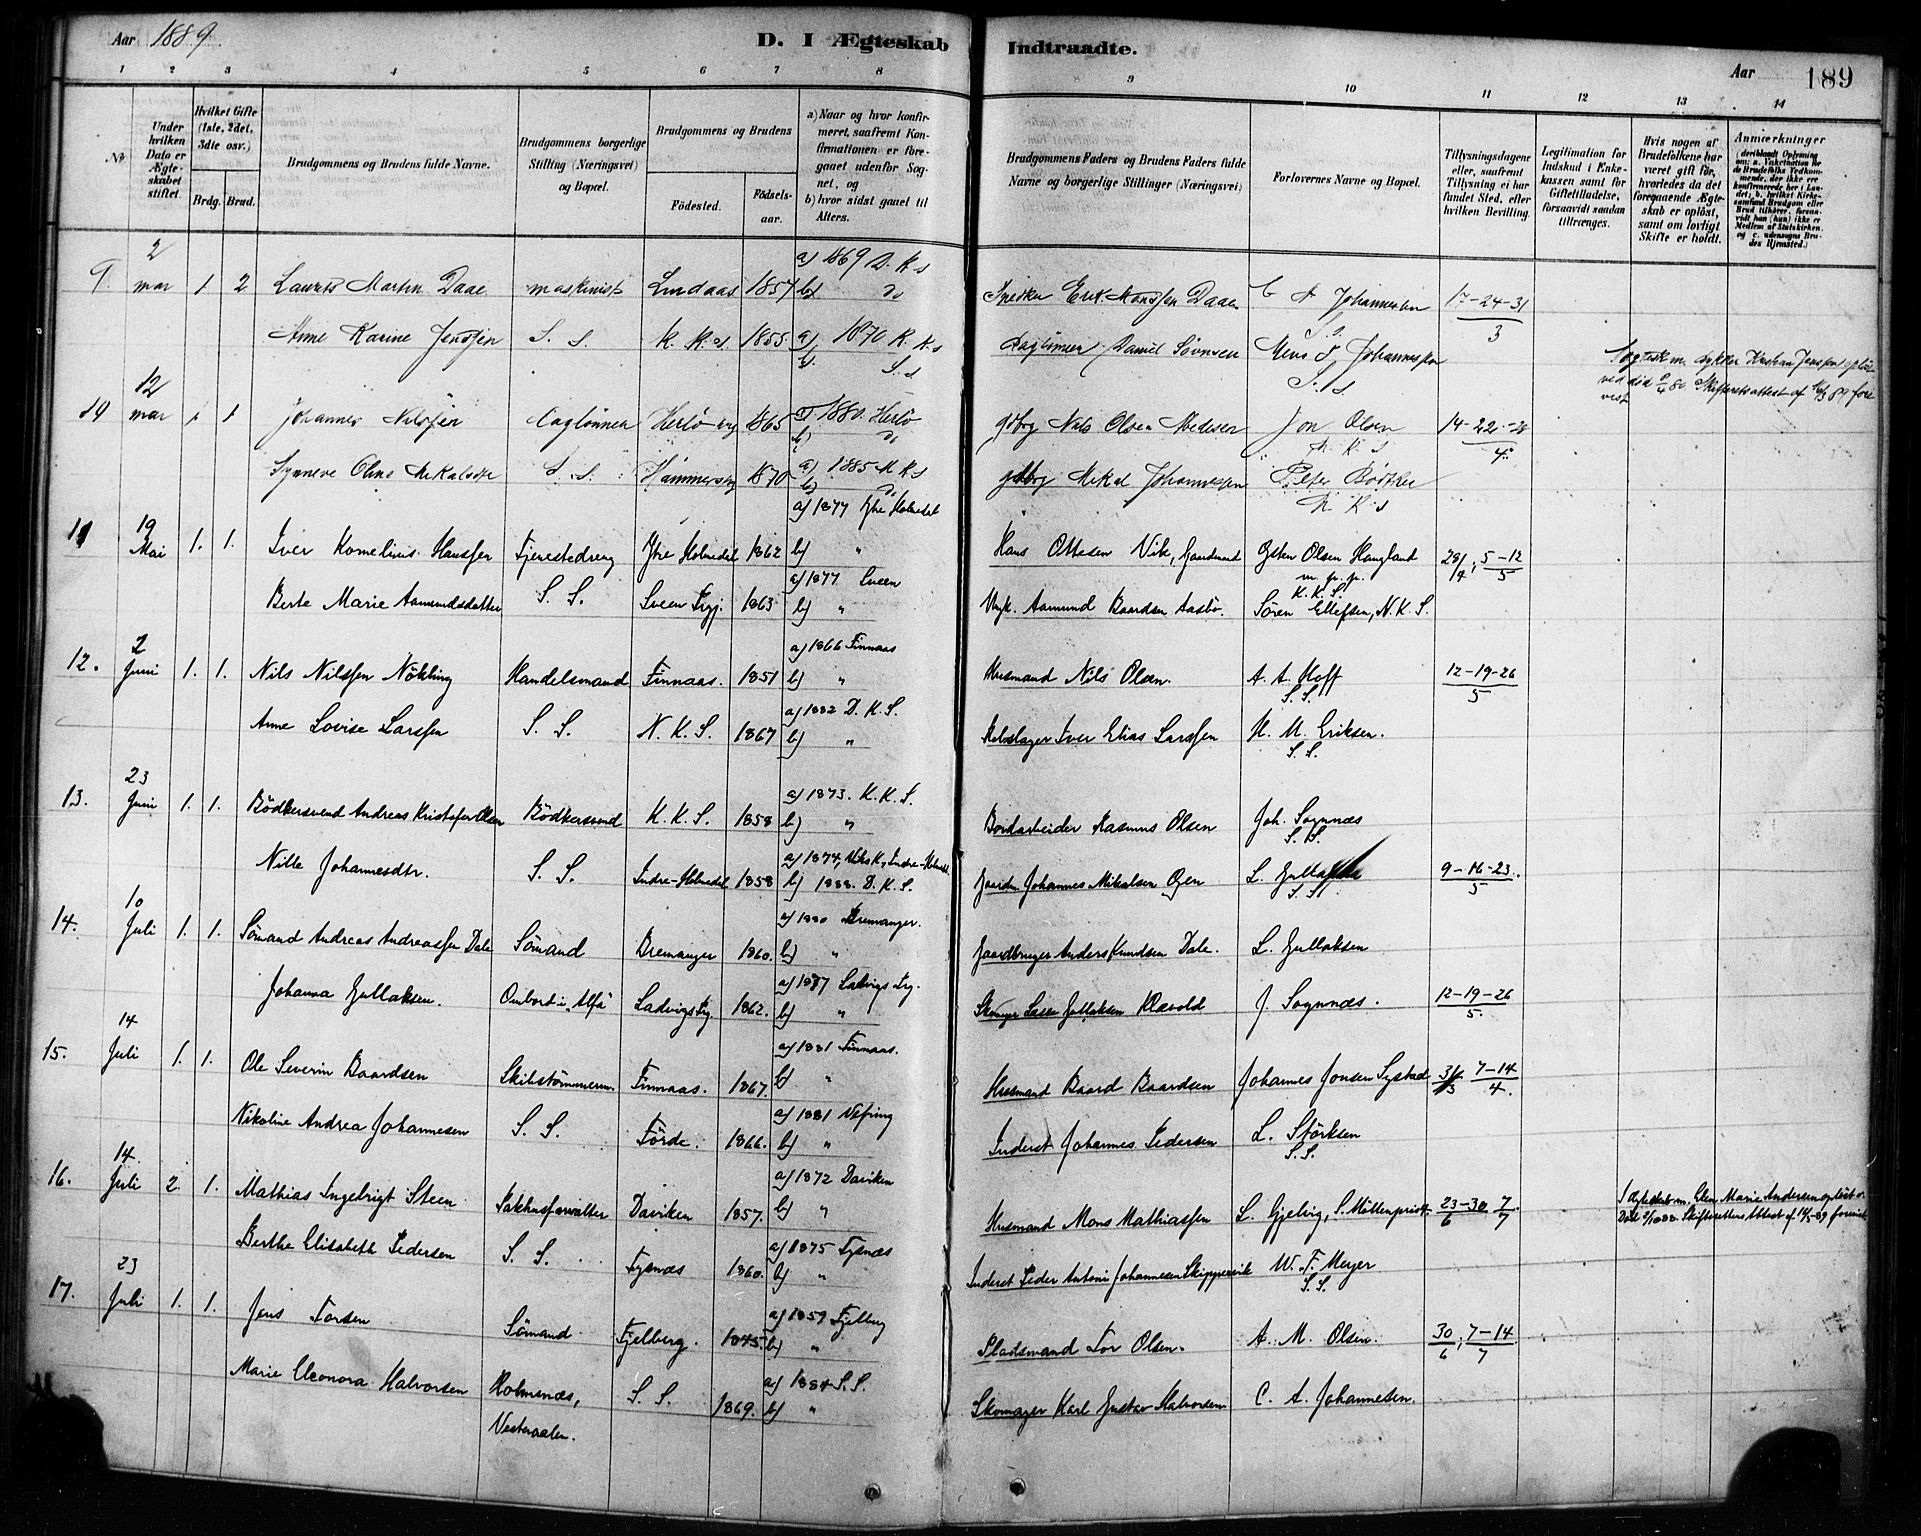 Aar 1889.
D. I Ægteskab Indtraadte.
Aar 189
1 2 3 4 5 6 7 8 9 10 11 12 13 14
No
Under hvilken Dato er Ægteskabet stiftet.
Hvilket Gifte (1ste, 2det, 3dte osv.)
Brdg. Brud.
Brudgommens og Brudens fulde Navne.
Brudgommens borgerlige Stilling (Næringsvei) og Bopæl.
Brudgommens og Brudens
Födested.
Födselsaar.
a) Naar og hvor konfirmeret, saafremt Konfirmationen er foregaaet udenfor Sognet, og
b) hvor sidst gaaet til Alters.
Brudgommens Faders og Brudens Faders fulde Navne og borgerlige Stillinger (Næringsvei)
Forlovernes Navne og Bopæl.
Tillysningsdagene eller, saafremt Tillysning ei har fundet Sted, efter hvilken Bevilling.
Legitimation for Indskud i Enkekassen samt for Giftetilladelse, forsaavidt saadan tiltrænges.
Hvis nogen af Brudefolkene har været gift før, hvorledes da det foregaaende Ægteskab er oplöst, samt om lovligt Skifte er holdt.
Anmærkninger
9. 2 mar 1 2 Laurits Martin Daae maskinist Lindaas 1857 a) 1869 D. K. s b) Do Snedker Erik Monssen Daae C A Johannessen S. s. 17-24-31/3
Anne Karine Jenssen S. S. K. K. s. 1855 a) 1870 K. K. s b) S. s Daglönner Daniel Sövnsen Mons J Johannessen S. s
10 12 mar 1 1 Johannes Nilssen Daglönner Herlö 1865 a) 1880 Herlö b) Do Nils Olsen Jon Olsen N. K. S 14-22-28/4
Synneve Oline S. S. Hammers 1870 a) 1885 N K S b) Do Mikal Johannessen Peter Bödtker N. K. s
11 19 Mai 1. 1. Iver Kornelius Hanssen Tjenestedreng Ytre Holmedal 1862 a) 1877 Ytre Holmedal b) " Hans Ottesen Vik, Gaardmand Östen Olsen Haugland m. p. p. K. K. S. 28/4, 5-12/5
Berte Marie Aamundsdatter S. S. Sveen Prgj. 1863 a) 1877 Sveen b) " Aamund Baardsen Aasbö. Sören Ellefsen, N. K. S.
12. 2 Juni 1. 1. Nils Nilssen Nökling Handelsmand Finnaas. 1851 a) 1866 Finnaas b) " Husmand Nils Olsen. A. A. Hoff S. S. 12-19-26/5
Anne Lovise Larssen S. S. N. K. S. 1867 a) 1882 D. K. S. b) " Iver Elias Larssen H. M. Eriksen. S. S.
13. 23 Juni 1. 1. Bödkersvend Andreas Kristofer Olsen Bödkersvend K. K. S. 1858 a) 1873. K. K. S. b) " Bordarbeider Rasmus Olsen Joh. Sognnæs S. S.
Nille Johannesdtr. S. S. Indre-Holmedal 1858 a) 1874, Viks K., Indre-Holmedal b) 1888. D. K. S. Gaardm. Johannes Mikalsen L. Gullaksen S. S. 9-16-23./5
14. 10 Juli 1. 1. Sömand Andreas Andreassen Dale Sömand Bremanger 1860. a) 1880 Bremanger. b) " Gaardbruger Anders Knudsen Dale. L. Gullaksen
Johanna Gullaksen. Ombord i "Alfa" Ladvigs Prg. 1862. a) 1887 Ladvigs Prg. b) " Lasse Gullaksen J. Sognnæs. 12-19-26/5.
15. 14 Juli 1. 1. Ole Severin Baardsen Skibstömmerm. Finnaas. 1867. a) 1881 Finnaas. b) " Husmand Baard Baardsen Johannes Jonsen Systad 31/3 7-14/4.
Nikoline Andrea Johannesen S. S. Förde. 1866. a) 1881 Vefring b) " Inderst Johannes Pedersen L. Störksen S. S.
16. 14. Juli 2. 1. Mathias Ingebrigt Steen Pakhusforvalter Daviken 1857. a) 1872 Daviken b) " Husmand Mons Mathiassen L. Gjelvig, S. Möllenpris 23-30/6 7/7.
Berthe Elisabeth Pedersen S. S. Tysnæs 1860. a) 1875 Tysnæs b) " Inderst Peder Antoni Johannesen Skippervik W. F. Meyer S. S.
17. 23 Juli 1. 1. Jens Torsen Sömand Fjelberg. 1845. a) 1859 Fjelberg b) " Pladsmand Tor Olsen. A. M. Olsen. 30/6, 7-14/7
Marie Eleonora Halvorsen Holmenæs, Vesteraalen. S. S. 1869. a) 1884 S. S. b) " Skomager Karl Gustav Halvorsen C. A. Johannesen.